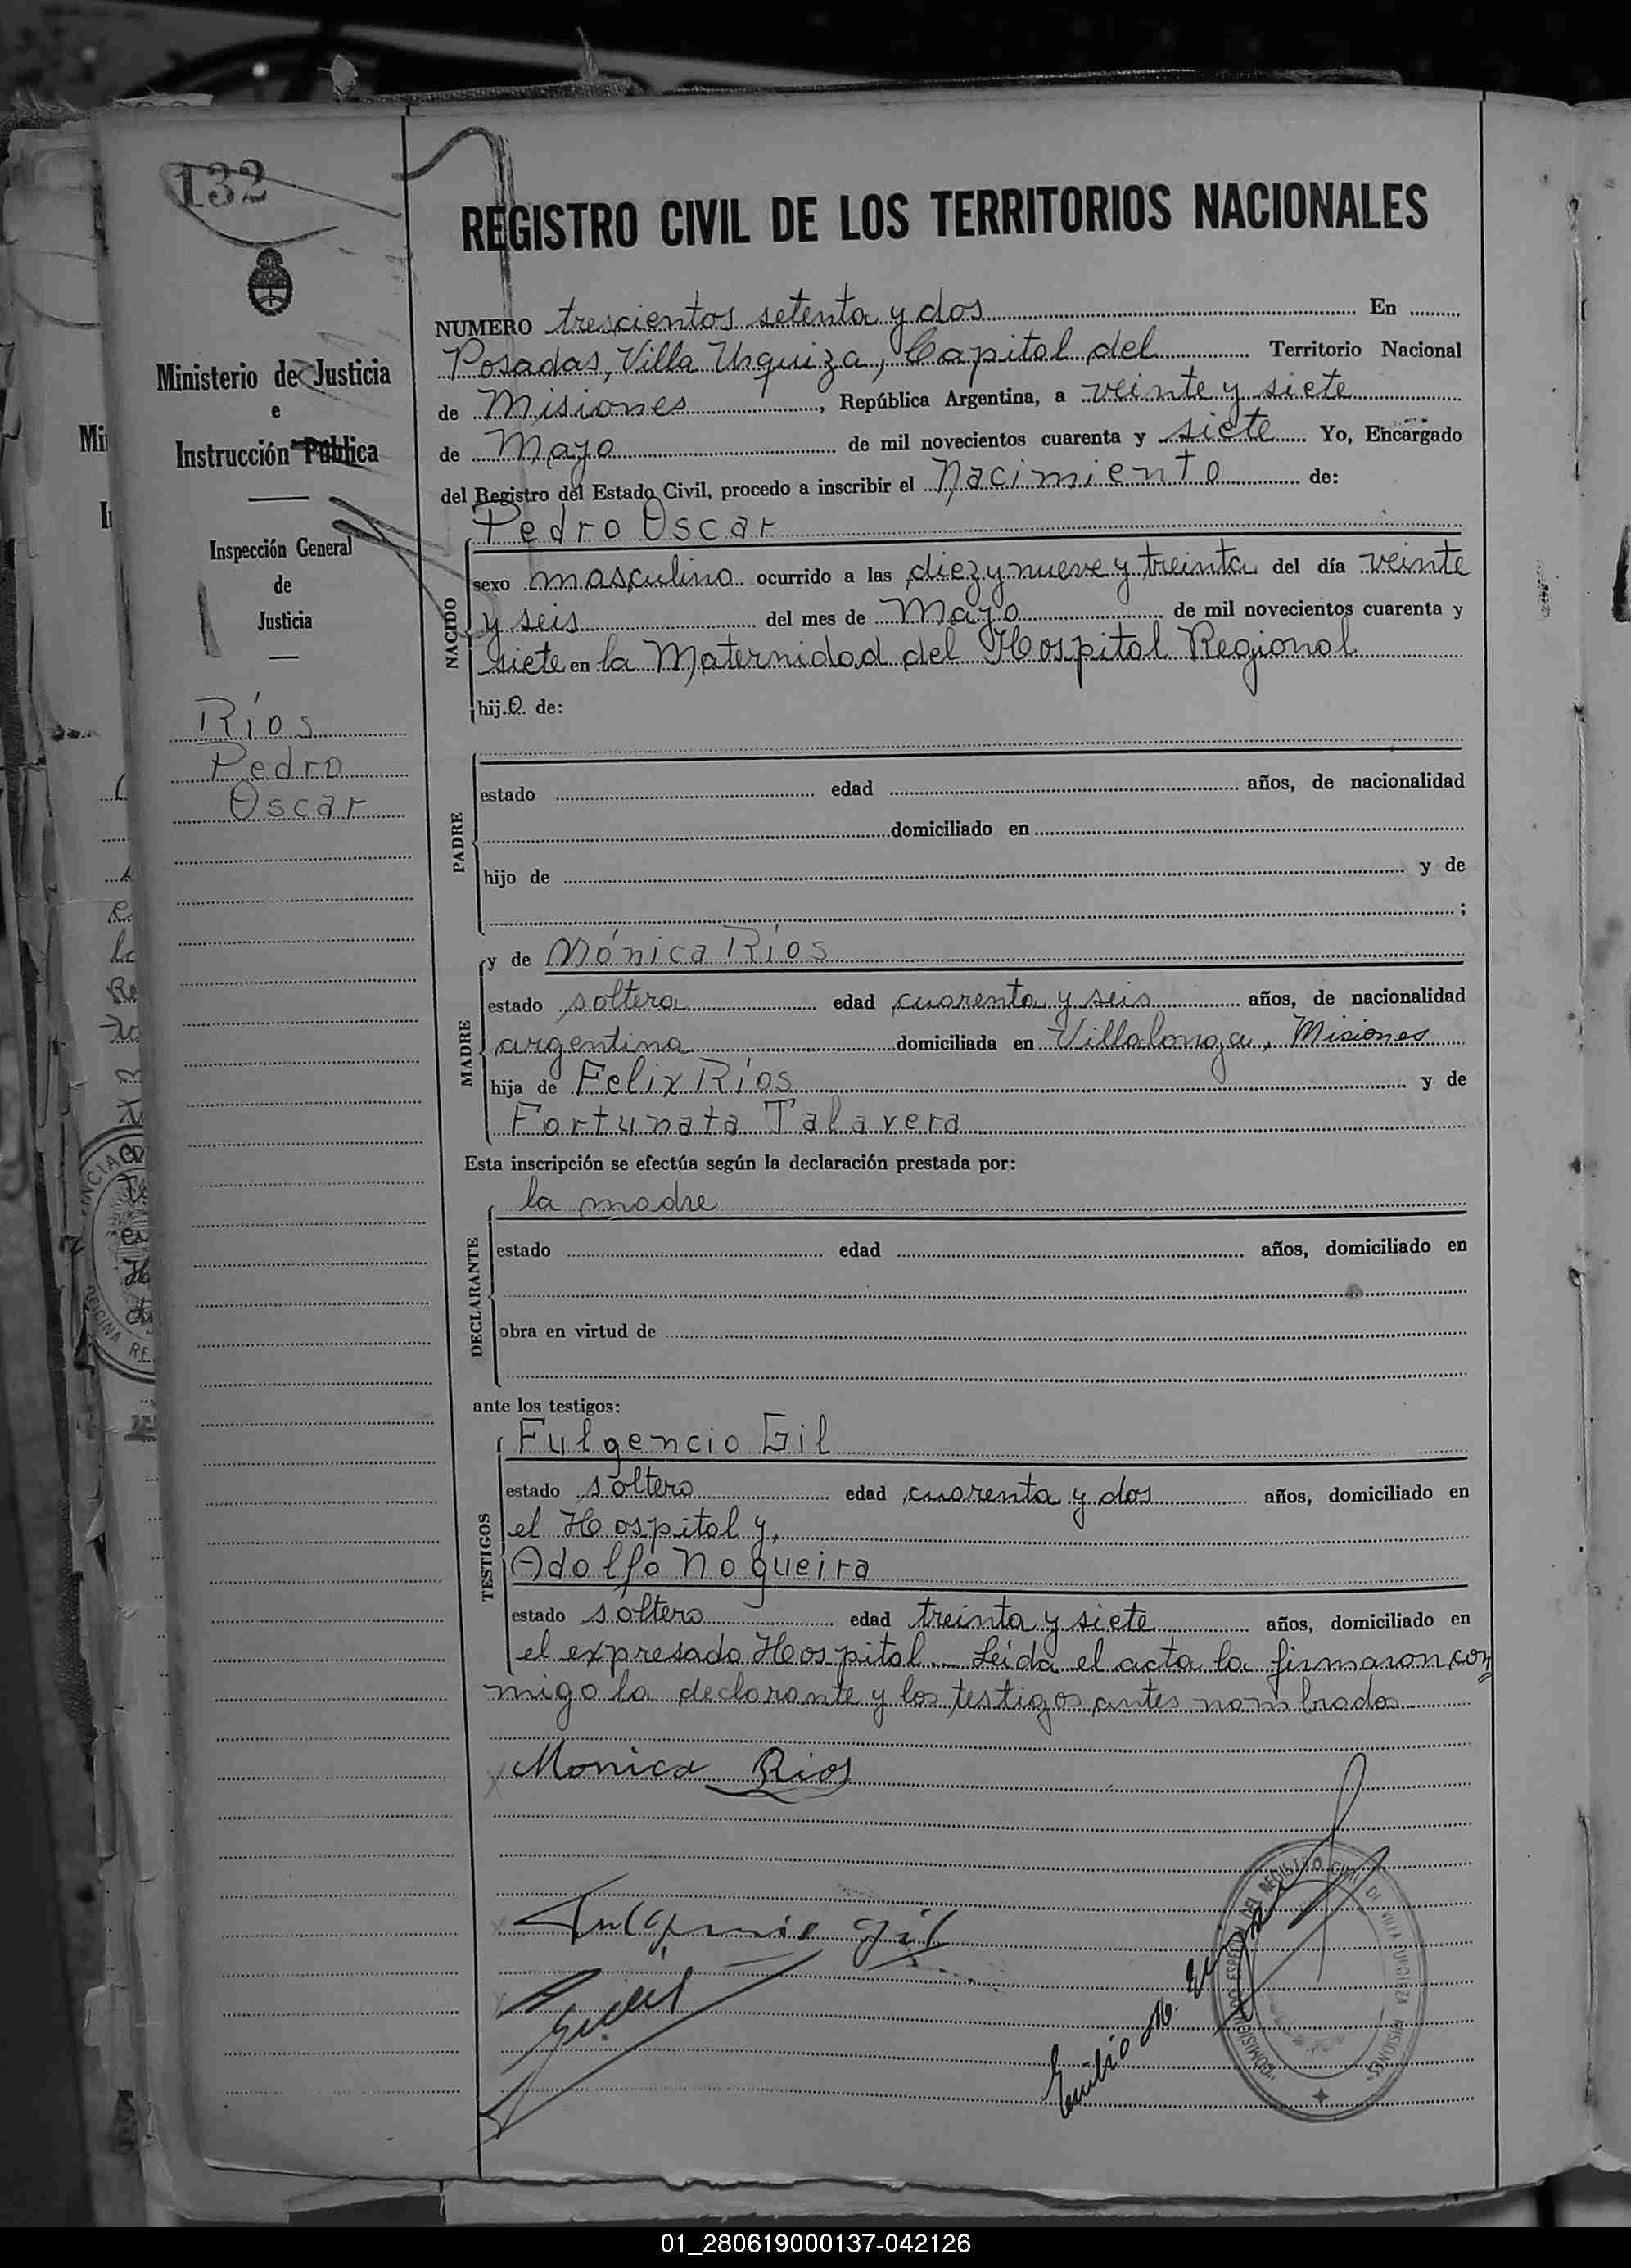 132
REGISTRO CIVIL DE LOS TERRITORIOS NACIONALES
Ministerio de Justicia
e
Instrucción Pública
Inspección General
de
Justicia
Ríos
Pedro
Oscar
NUMERO trescientos setenta y dos En
Posadas, Villa Urquiza, Capital del Territorio Nacional
de Misiones, República Argentina, a veinte y siete
de Mayo de mil novecientos cuarenta y siete Yo, Encargado
del Registro del Estado Civil, procedo a inscribir el Nacimiento de:
Pedro Oscar
NACIDO
sexo masculino ocurrido a las diez y nueve y treinta del día veinte
y seis del mes de Mayo de mil novecientos cuarenta y
siete en la Maternidad del Hospital Regional
hijo de:
PADRE
estado edad años, de nacionalidad
domiciliado en
hijo de y de
;
MADRE
y de Mónica Ríos
estado soltera edad cuarenta y seis años, de nacionalidad
argentina domiciliada en Villalonga, Misiones
hija de Felix Ríos y de
Fortunata Talavera
Esta inscripción se efectúa según la declaración prestada por:
DECLARANTE
la madre
estado edad años, domiciliado en
obra en virtud de
ante los testigos:
TESTIGOS
Fulgencio Gil
estado soltero edad cuarenta y dos años, domiciliado en
el Hospital y,
Adolfo Nogueira
estado soltero edad treinta y siete años, domiciliado en
el expresado Hospital.- Leída el acta la firmaron con
migo la declarante y los testigos antes nombrados
Monica Rios
Fulgencio Gil
Emilio M.
DEL REGISTRO CIVIL DE VILLA URQUIZA MISIONES
01_280619000137-042126